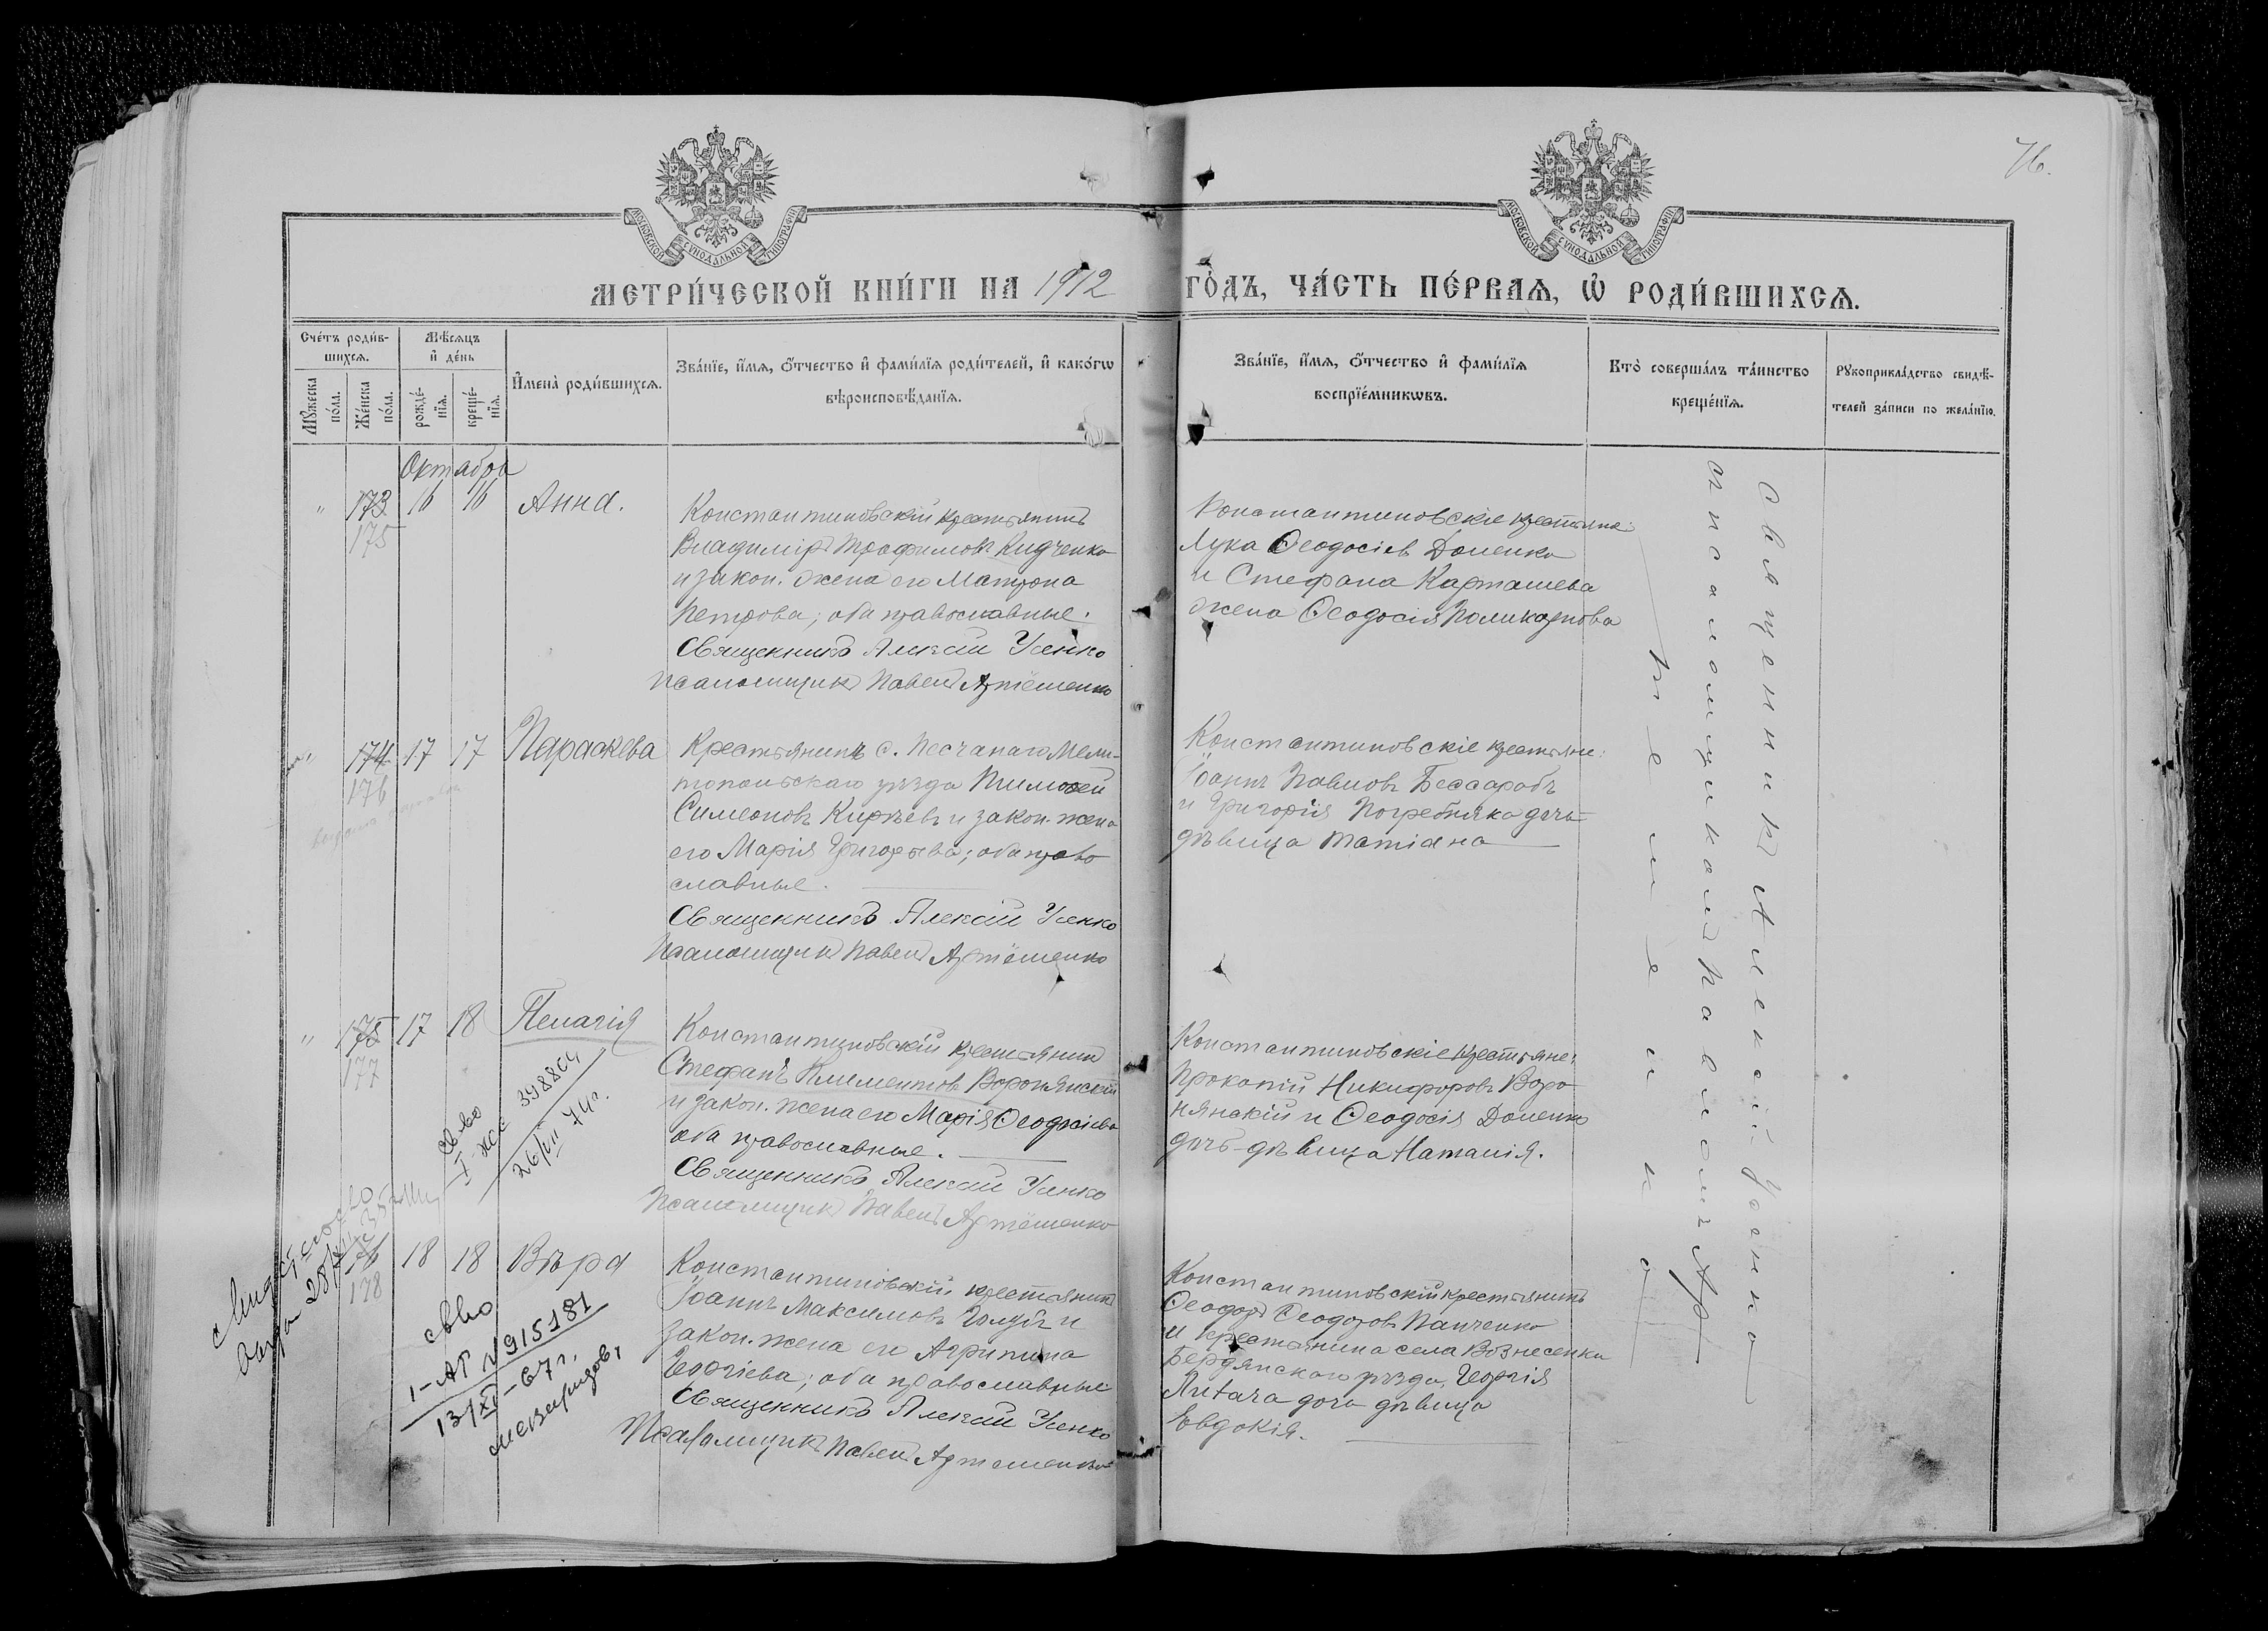 76.
МОСКОВСКОЙ СѴНОДАЛЬНОЙ ТИПОГРАФІИ
МОСКОВСКОЙ СѴНОДАЛЬНОЙ ТИПОГРАФІИ
МЕТРИ́ЧЕСКОЙ КНИ́ГИ НА 1912 ГО́ДЪ, ЧА́СТЬ ПЕ́РВАѦ, Ѽ РОДИ́ВШИХСѦ.
Сче́тъ роди́в-
шихсѧ.
Мꙋ́жеска
по́ла.
Же́нска
по́ла.
Мѣ́сѧцъ
и҆ де́нь
рожде́-
нїѧ.
креще́-
нїѧ.
И҆мена̀ роди́вшихсѧ.
Зва́нїе, и҆́мѧ, ѻ҆́тчество и҆ фами́лїѧ роди́телей, и҆ како́гѡ
вѣроисповѣ́данїѧ.
Зва́нїе, и҆́мѧ, ѻ҆́тчество и҆ фами́лїѧ
воспрїе́мникѡвъ.
Кто̀ соверша́лъ та́инство
креще́нїѧ.
Рꙋкоприкла́дство свидѣ́-
телей за́писи по жела́нїю.
Октября
" 173 16 16 Анна.
175
Константиновскій крестьянинъ
Владиміръ Трофимовъ Кидченко
и закон. жена его Матрона
Петрова; оба православные.
Священникъ Алексій Усенко
Псаломщикъ Павелъ Артёменко
Константиновскіе крестьяне:
Лука Ѳеодосіевъ Доценко
и Стефана Карташева
жена Ѳеодосія Поликарпова
" 174 17 17 Параскева
176
Крестьянинъ с. Песчанаго Мели-
топольскаго уѣзда Тимоѳей
Симеоновъ Кирѣевъ и закон. жена
его Марія Григорьева; оба право
славные.
Священникъ Алексій Усенко
Псаломщикъ Павелъ Артёменко
Константиновскіе крестьяне:
Іоаннъ Павловъ Бессарабъ
и Григорія Погребняка дочь
дѣвица Татіана
" 175 17 18 Пелагія
177
Константиновскій крестьянинъ
Стефанъ Климентовъ Воронянскій
и закон. жена его Марія Ѳеодосіева
оба православные.
Священникъ Алексій Усенко
Псаломщикъ Павелъ Артёменко
Константиновскіе крестьяне:
Прокопій Никифоровъ Воро
нянскій и Ѳеодосія Доценко
дочь-дѣвица Наталія.
св-во
398864
26/VII 74г.
176 18 18 Вѣра
178
Константиновскій крестьянинъ
Іоаннъ Максимовъ Голубъ и
закон. жена его Агрипина
Георгіева; оба православные
Священникъ Алексій Усенко
Псаломщикъ Павелъ Артеменко
Константиновскій крестьянинъ
Ѳеодоръ Ѳеодоровъ Панченко
и крестьянина села Вознесенки
Бердянскаго уѣзда, Георгія
дочь дѣвица
Евдокія.
св-во
1-АП №915181
13/XI-67г.
Священникъ Алексій Усенко
съ псаломщикомъ Павломъ Ар-
теменко